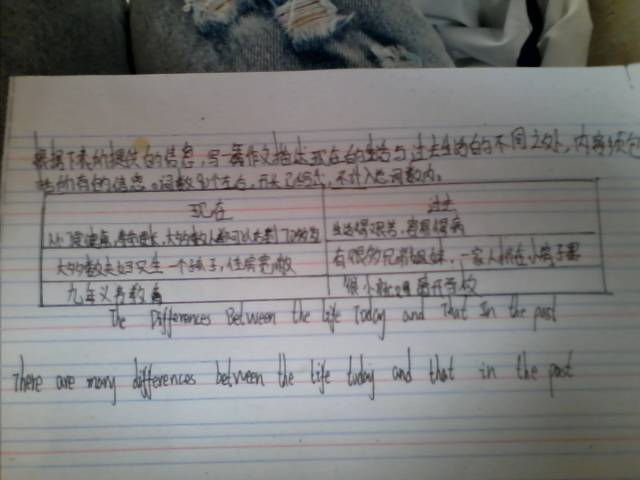 根据下表所提供的信息,写一篇作文描述现在的生活与过去生活的不同之处,内容须包
括所有的信息。词数90个左右,开头已给出,不计入总词数内。
现在 过去
人们更健康,寿命更长,大多数人都可以活到70多岁 生活得艰苦,容易得病
大多数夫妇只生一个孩子,住房宽敞 有很多兄弟姐妹,一家人挤在小房子里
九年义务教育 很小就离开学校
The Differences Between the life Today and That In the past
There are many differences between the life today and that in the past